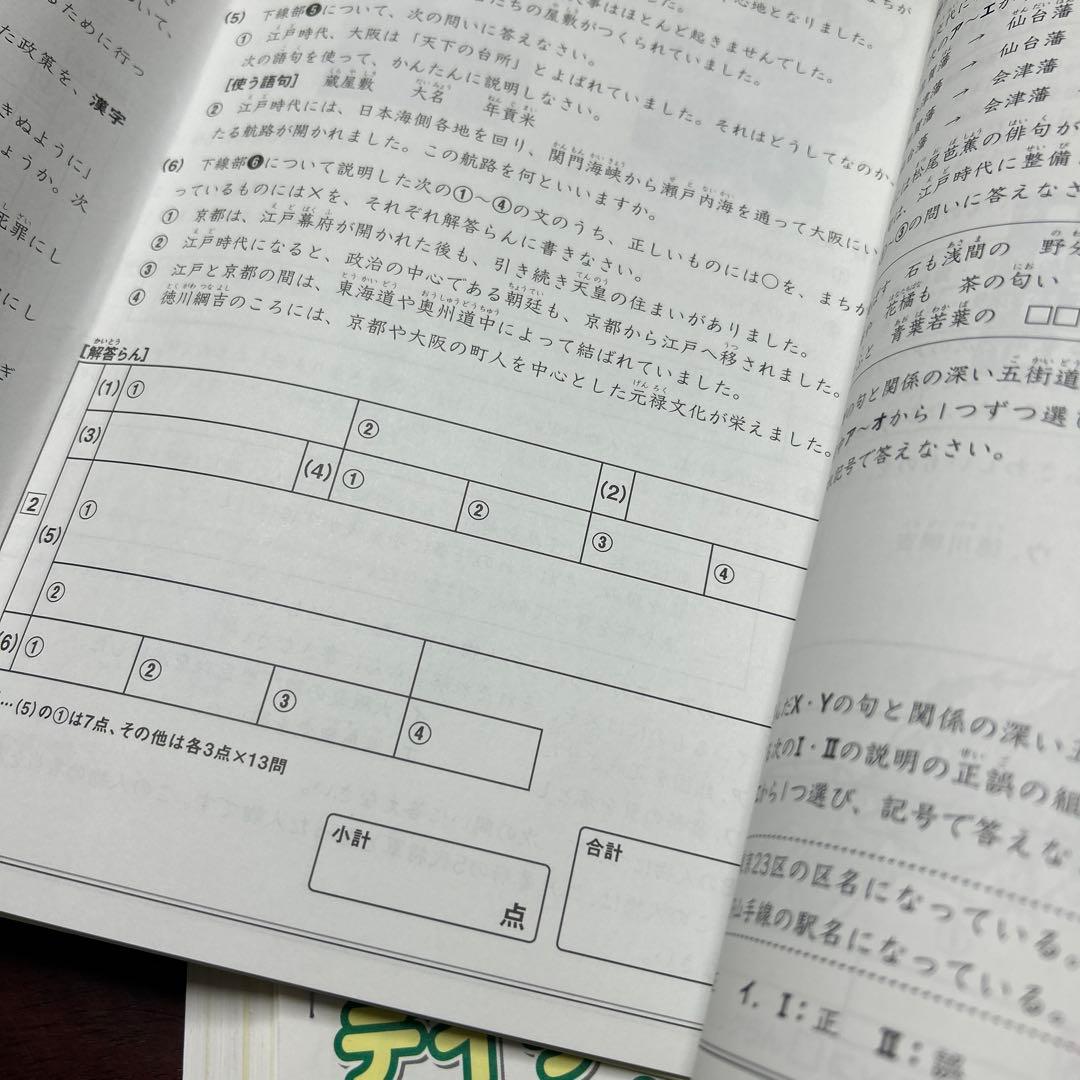 めに行っ
た政策を、漢字
きぬように」
ょうか。次
死罪にし
にし
心地となりました。
事はほとんど起きませんでした。
たちの屋敷がつくられていました。
(5) 下線部❺について、次の問いに答えなさい。
① 江戸時代、大阪は「天下の台所」とよばれていました。それはどうしてなのか、
次の語句を使って、かんたんに説明しなさい。
[使う語句] 蔵屋敷 大名 年貢米
② 江戸時代には、日本海側各地を回り、関門海峡から瀬戸内海を通って大阪にい
たる航路が開かれました。この航路を何といいますか。
(6) 下線部❻について説明した次の①〜④の文のうち、正しいものには○を、まちが
っているものには×を、それぞれ解答らんに書きなさい。
① 京都は、江戸幕府が開かれた後も、引き続き天皇の住まいがありました。
② 江戸時代になると、政治の中心である朝廷も、京都から江戸へ移されました。
③ 江戸と京都の間は、東海道や奥州道中によって結ばれていました。
④ 徳川綱吉のころには、京都や大阪の町人を中心とした元禄文化が栄えました。
[解答らん]
2
(1) ① ② (2)
(3) (4) ① ② ③ ④
(5) ①
②
(6) ① ② ③ ④
…(5)の①は7点、その他は各3点×13問
小計
点
合計
ア〜エか
→ 仙台藩
→ 仙台藩
→ 会津藩
→ 会津藩
は松尾芭蕉の俳句が
は、江戸時代に整備
の問いに答えなさ
石も浅間の 野分
花橘も 茶の匂い
青葉若葉の □□
の句と関係の深い五街道
ア〜オから1つずつ選び
記号で答えなさい。
んだX・Yの句と関係の深い五
次のⅠ・Ⅱの説明の正誤の組
から1つ選び、記号で答えな
23区の区名になっている。
山手線の駅名になっている。
イ. Ⅰ:正 Ⅱ:誤